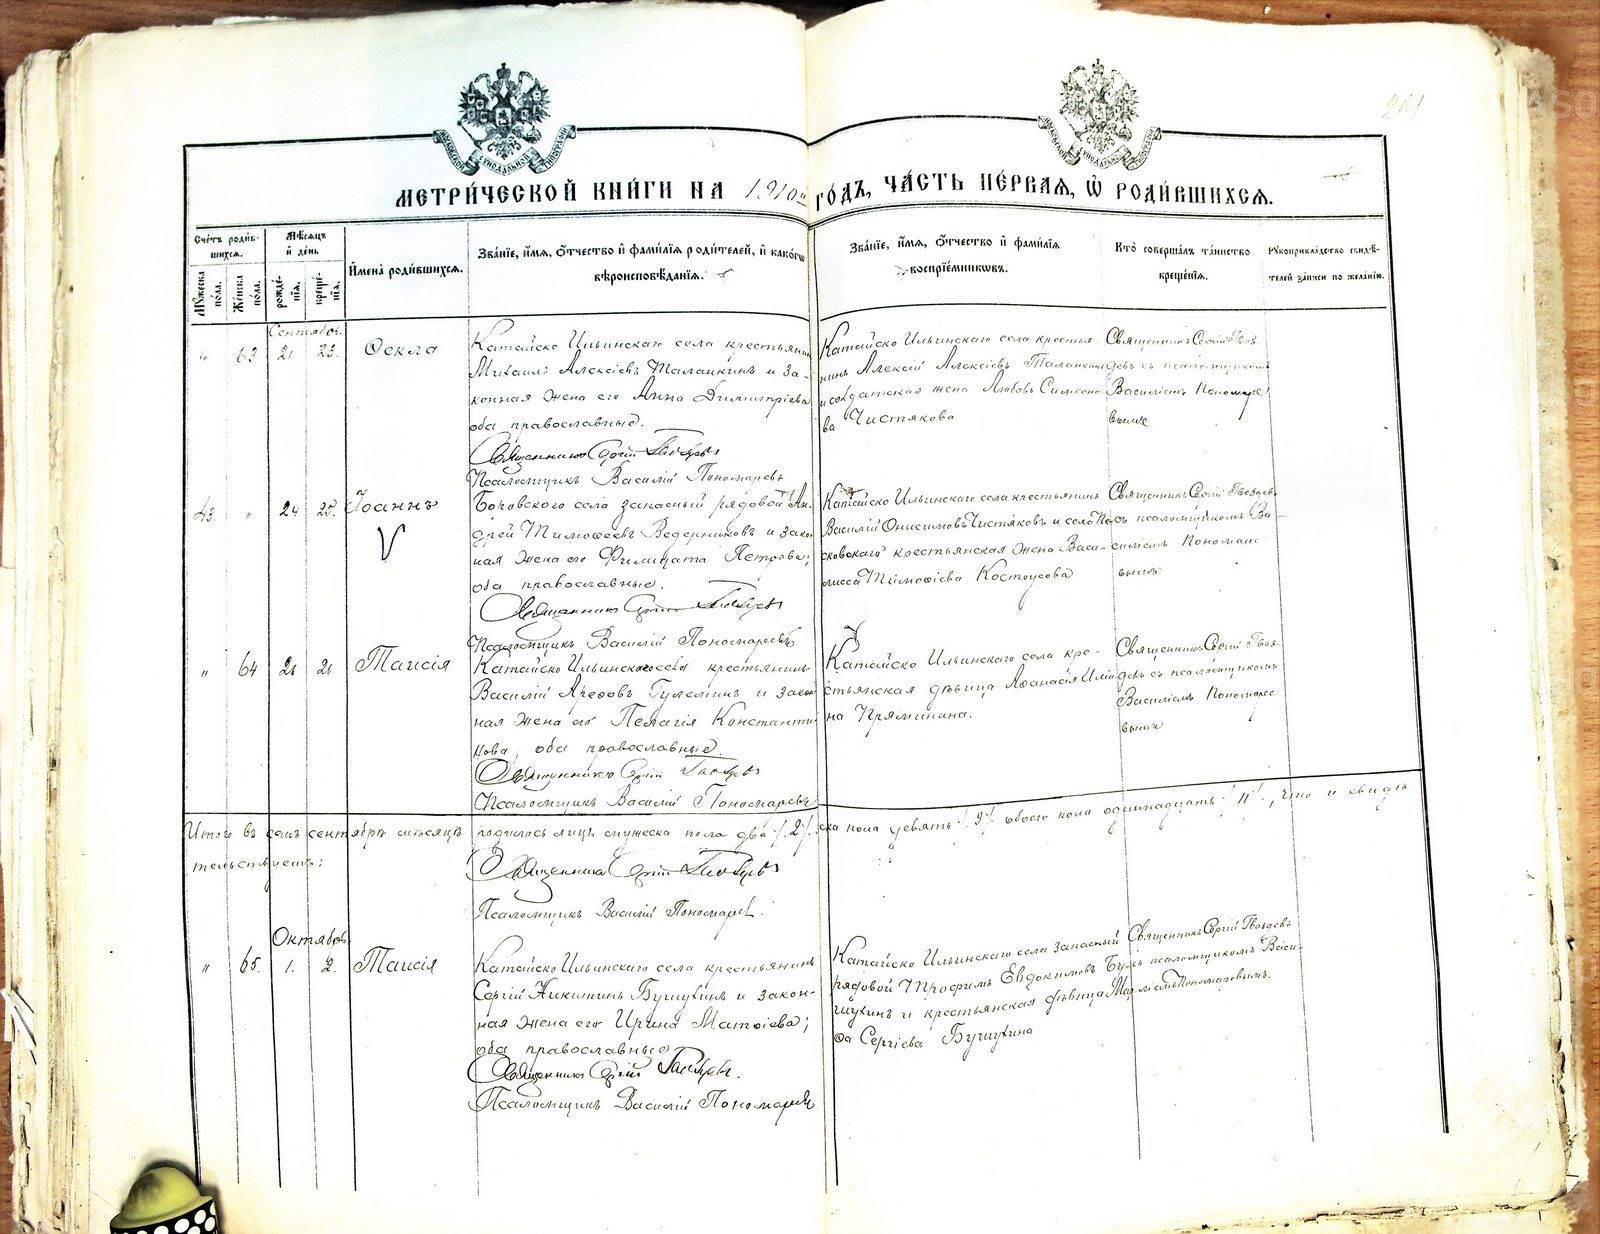 МЕТРИ́ЧЕСКОЙ КНИ́ГИ НА 1910й ГО́ДЪ, ЧА́СТЬ ПЕ́РВАЯ, Ѡ҆ РОДИ́ВШИХСЯ.
Сче́тъ роди́в-
шихся.
Мꙋжеска по́ла.
Же́нска по́ла.
Мѣ́сяцъ и҆ де́нь
рожде́нїя.
креще́нїя.
И҆мена̀ роди́вшихся.
Зва́нїе, и҆́мя, ѻ҆́тчество и҆ фами́лїя роди́телей, и҆ како́гѡ
вѣроисповѣ́данїя.
Зва́нїе, и҆́мя, ѻ҆́тчество и҆ фами́лїя
воспрїе́мникѡвъ.
Кто̀ соверша́лъ та́инство
креще́нїя.
Рꙋкоприкла́дство свидѣ́-
телей за́писи по жела́нїи.
Сентябрь
" 63 21 23. Ѳекла
Катайско Ильинскаго села крестьянинъ
Михаилъ Алексіевъ Таланкинъ и за-
конная жена его Анна Димитріева
оба православные.
Священникъ Сергій Гвоздевъ
Псаломщикъ Василій Пономаревъ
Катайско Ильинскаго села крестья-
нинъ Алексій Алексіевъ
и солдатская жена Любовь Симеоно
ва Чистякова
Священникъ Сергій Гвоз
девъ съ псаломщикомъ
Василіемъ Пономаре
вымъ
43. " 24 25. Іоаннъ
V
Боровского села запасный рядовой Ан-
дрей Тимоѳеевъ Ведерниковъ и закон
ная жена его Филицата Петрова;
оба православные.
Священникъ Сергій Гвоздевъ
Псаломщикъ Василій Пономаревъ
Катайско Ильинскаго села крестьянинъ
Василій Онисимовъ Чистяковъ и села Пе
сковскаго крестьянская жена Васи-
лисса Тимоѳіева Костоусова
Священникъ Сергій Гвоздевъ
съ псаломщикомъ Ва-
силіемъ Пономаре
вымъ
" 64 21 21 Таисія
Катайско Ильинскаго села крестьянинъ
Василій Арефовъ Гулеминъ и закон
ная жена его Пелагія Константи
нова, оба православные.
Священникъ Сергій Гвоздевъ
Псаломщикъ Василій Пономаревъ
Катайско Ильинскаго села кре-
стьянская дѣвица Аѳанасія
на Прямичина.
Священникъ Сергій Гвоз
девъ съ псаломщикомъ
Василіемъ Пономаре
вымъ
Итого въ семъ сентябрѣ мѣсяцѣ родилось лицъ мужеска пола два /.2/. ска пола девять /.9/. обоего пола одиннадцать /.11/., что и свидѣ
тельствуемъ:
Священникъ Сергій Гвоздевъ
Псаломщикъ Василій Пономаревъ.
Октябрь
" 65. 1. 2. Таисія
Катайско Ильинскаго села крестьянинъ
Сергій Никитинъ Бушухинъ и закон-
ная жена его Ирина Матѳіева;
оба православные
Священникъ Сергій Гвоздевъ.
Псаломщикъ Василій Пономаревъ
Катайско Ильинскаго села запасный
рядовой Трофимъ Евдокимовъ Бу-
шухинъ и крестьянская дѣвица Мар
ѳа Сергіева Бушухина
Священникъ Сергій Гвоздевъ
съ псаломщикомъ Васи-
ліемъ Пономаревымъ.